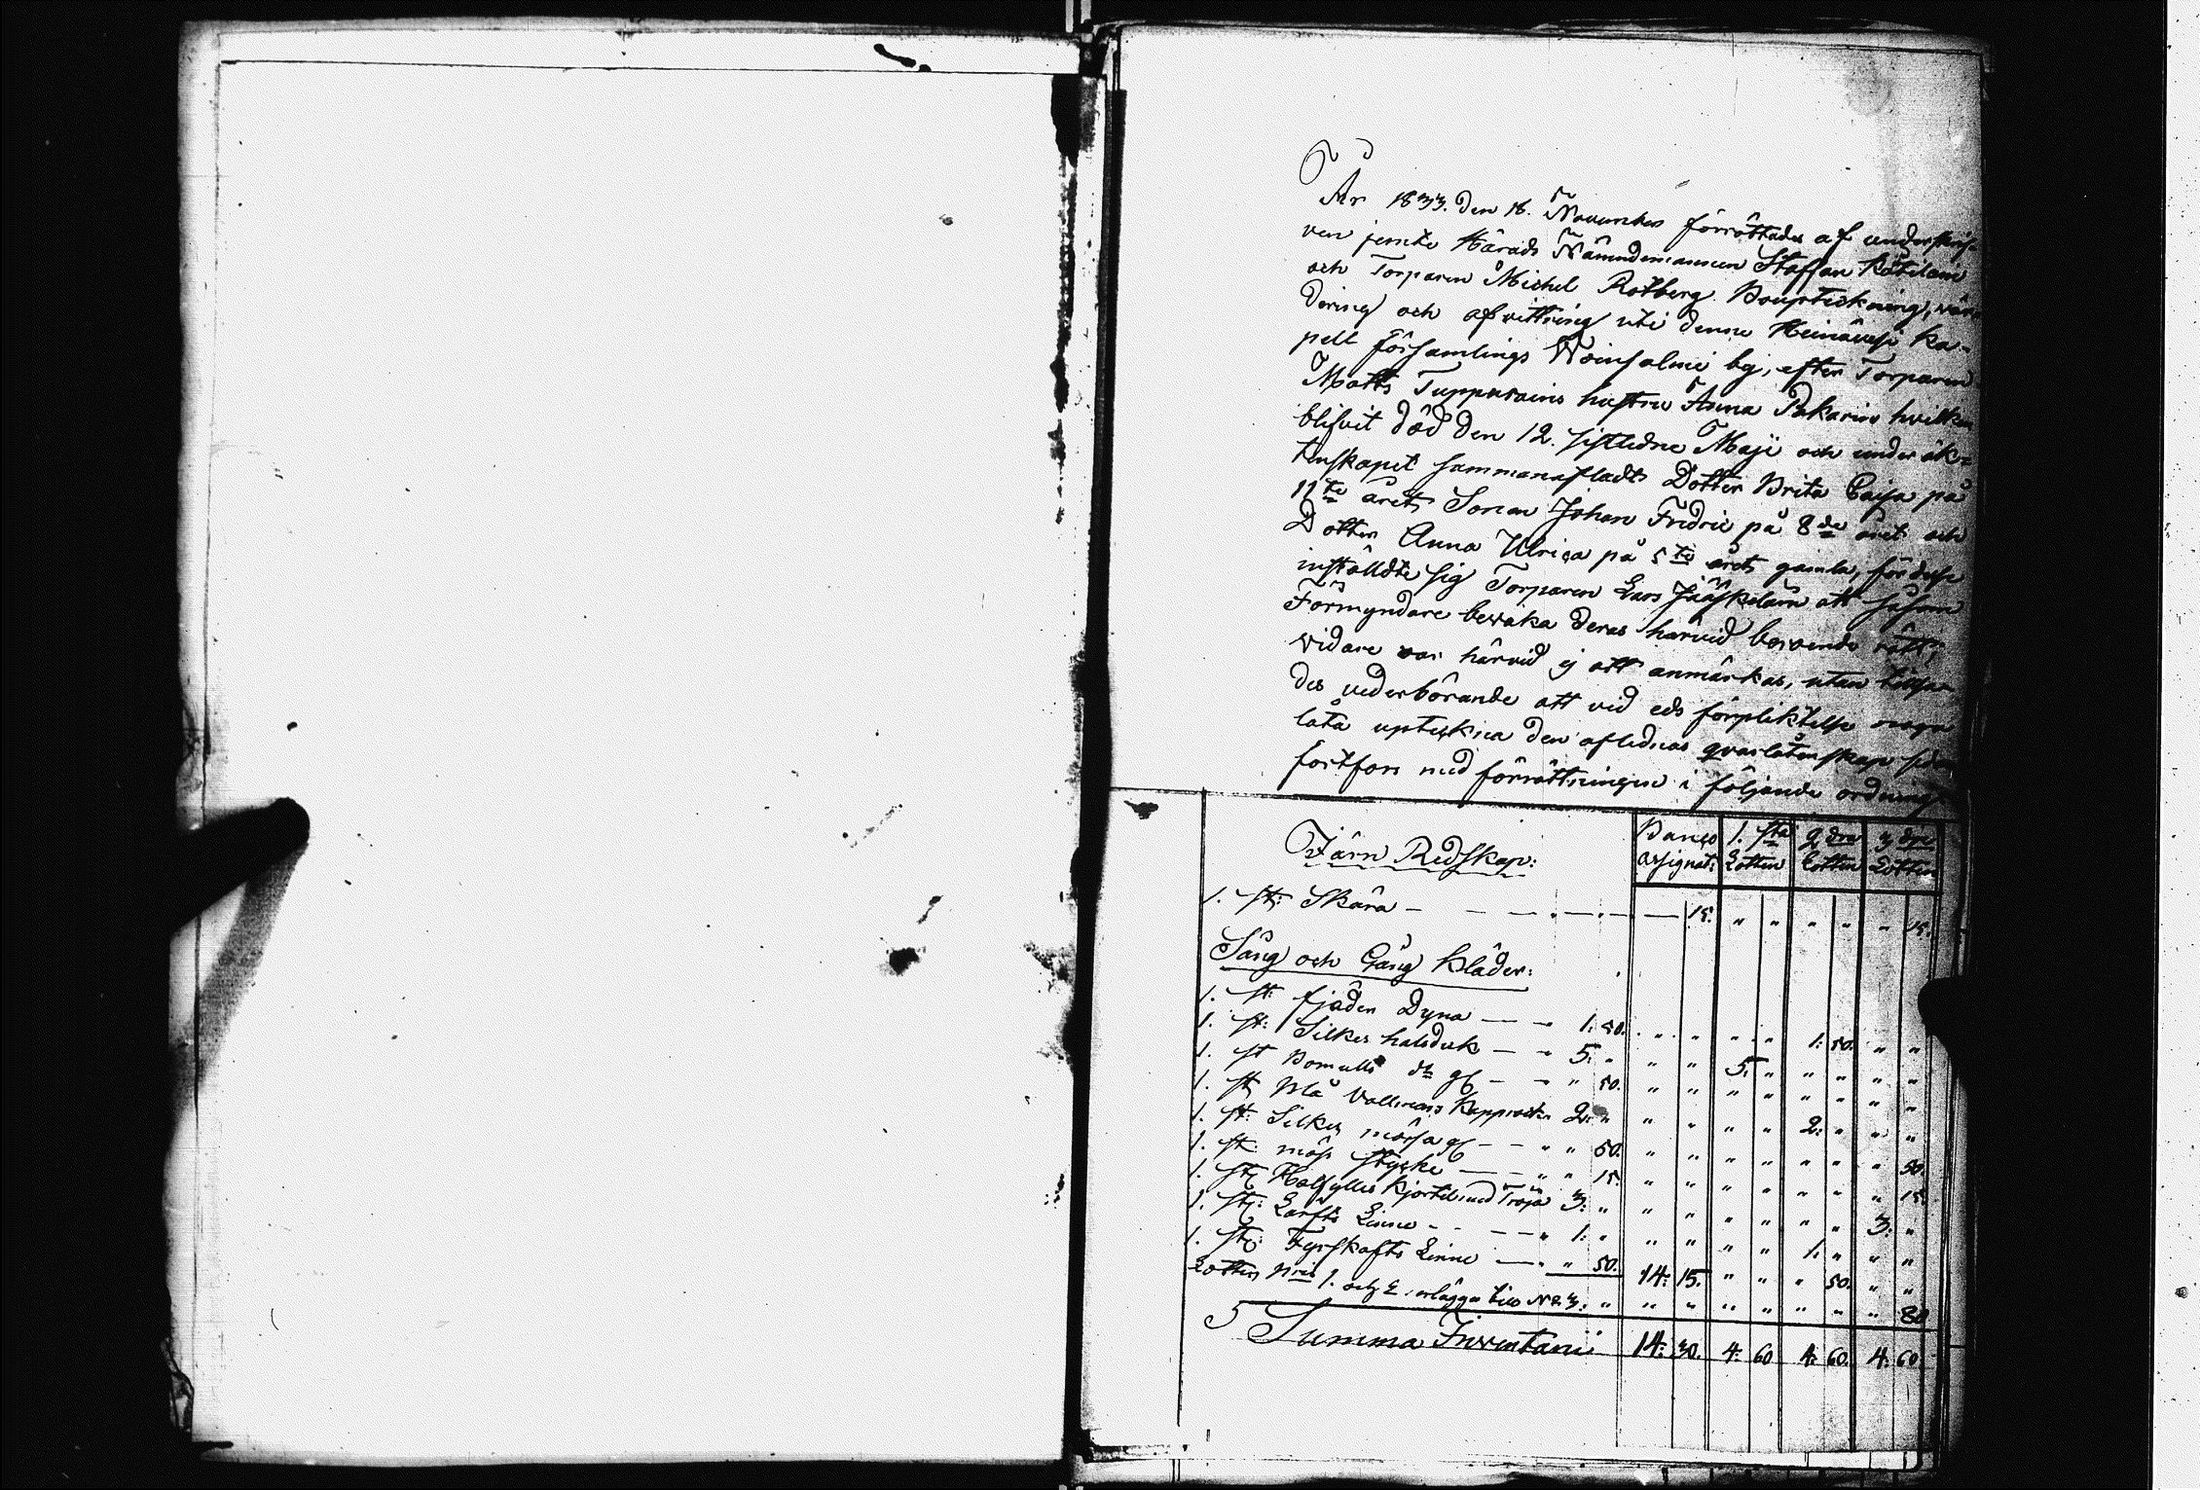 År 1833. den 18. November förrättades af underskrif-
ven jemte Härads Nämndemannen Staffan Kätilain
och Torparen Michel Rotberg Bouptekning, vär-
dering och afvittring uti denne Heinävesi Ka-
pell församlings Woinsalmi by, efter Torparen
Matts Tuppurains hustru Anna Pakarin hvilken
blifvit död den 12. sistledne Maji och under äk-
tenskapet sammanafladt Dotter Brita Caisa på
11te året, Sonen Johan Fredric på 8de året och
Dotter Anna Ulrica på 5te året gamla, för desse
inställdte sig Torparen Lars Jääskelain att såsom
Förmyndare bevaka deras härvid beroende rätt;
vidare var härvid ej att anmärkas, utan tillsa-
des vederbörande att vid eds förpliktelse noga
låta uptekna den aflednas qvarlåtenskap som
fortfors med förrättningen i följande ordning
Banco assignat: 1.sta Lotten 2dra Lotten 3dje Lotten
Järn Redskap:
1. st: Skära — — — 15. " " " " " 15.
Säng och Gång Kläder:
1. st: fjäder Dyna — — " 1: 50. " " " " 1: 50. " "
1. st: Silkes halsduk — " 5: " " " 5: " " " " "
1. st Bomulls do gl — " " 50. " " " " " " " "
1. st Blå Vallmans Kapprock 2: " " " " " 2: " " "
1. st: Silkes mössa gl — " " 50. " " " " " " " 50.
1. st: möss stycke — " " 15. " " " " " " " 15.
1. st: Halfylles Kjortel med Tröja 3: " " " " " " " 3: "
1. st: Lärfts Linne — " 1: " " " " " 1: " " "
1. st: Fyrskafts Linne — " " 50. 14: 15. " " " 50. " "
Lotten Nris 1. och 2. erlägga till No 3. " " " " " " " " 80
Summa Inventarii 14: 30. 4: 60 4: 60. 4: 60.